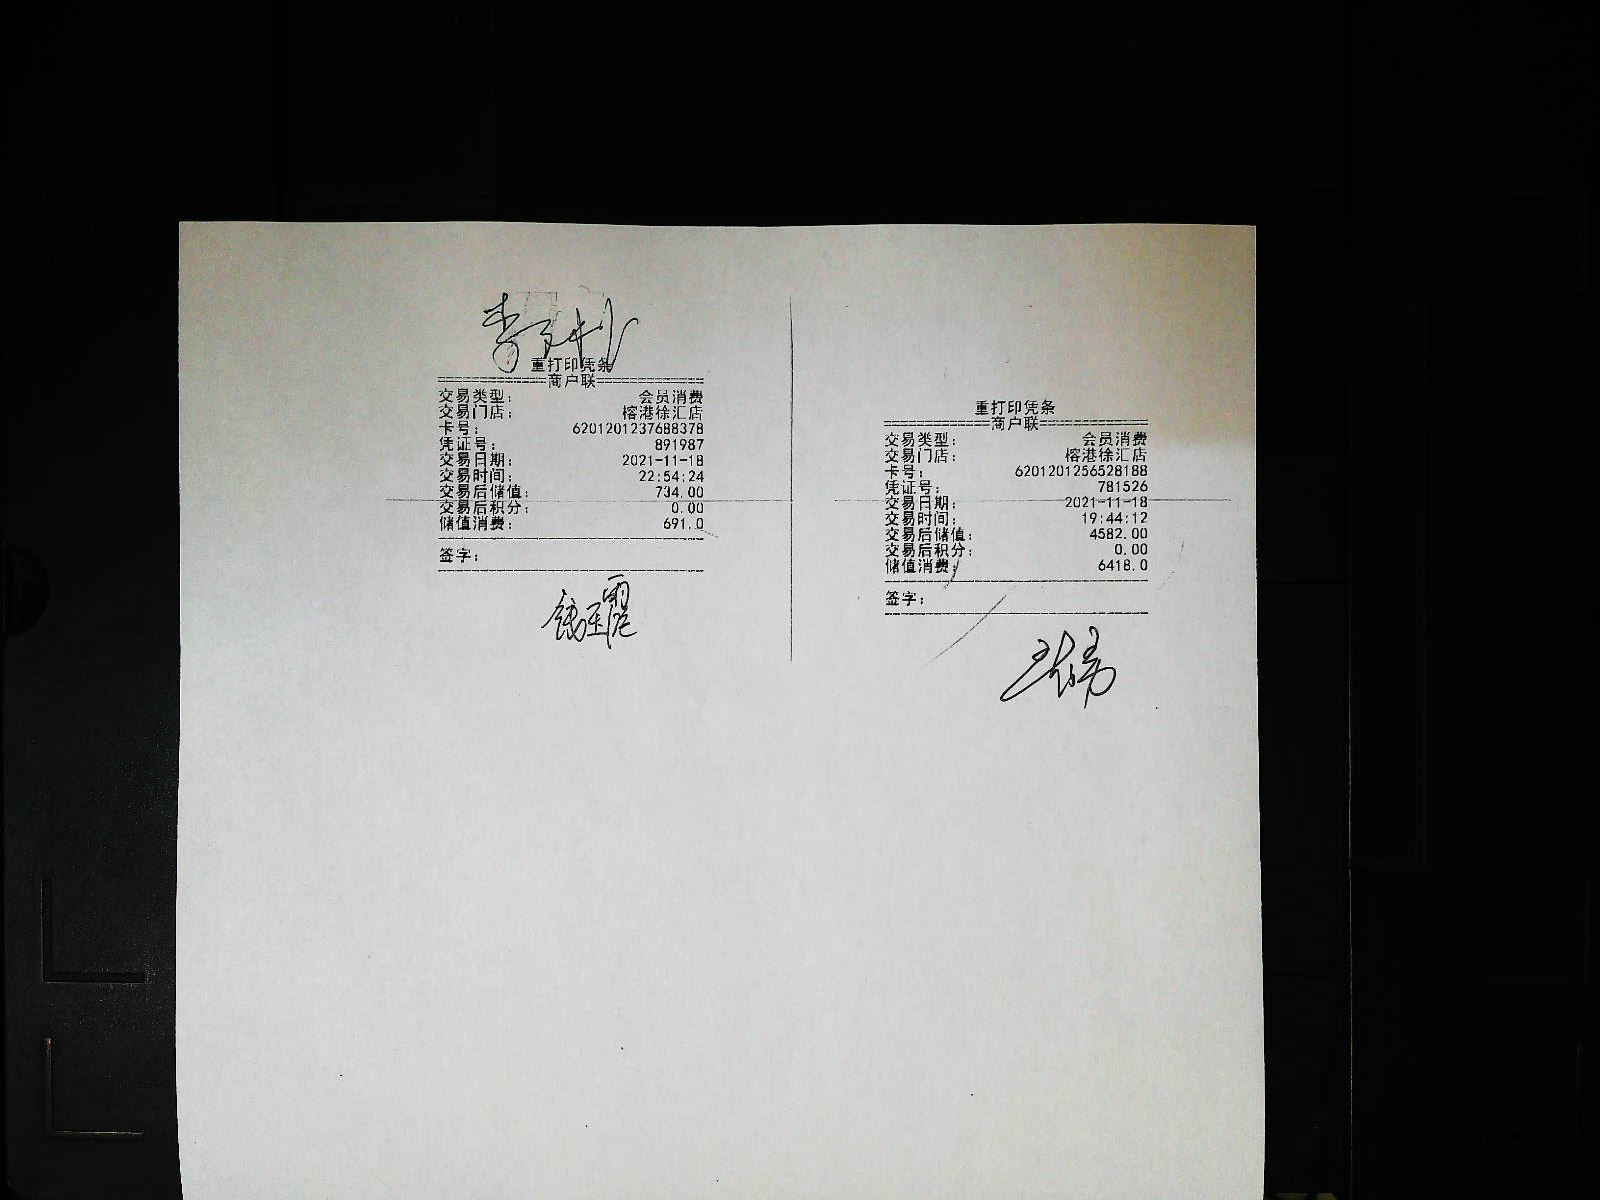 重打印凭条
商户联
交易类型： 会员消费
交易门店： 榕港徐汇店
卡号： 6201201237688378
凭证号： 891987
交易日期： 2021-11-18
交易时间： 22:54:24
交易后储值： 734.00
交易后积分： 0.00
储值消费： 691.0
签字：
重打印凭条
商户联
交易类型： 会员消费
交易门店： 榕港徐汇店
卡号： 6201201256528188
凭证号： 781526
交易日期： 2021-11-18
交易时间： 19:44:12
交易后储值： 4582.00
交易后积分： 0.00
储值消费： 6418.0
签字：